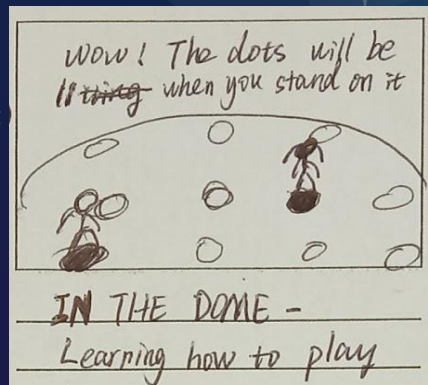 Wow! The dots will be
when you stand on it
IN THE DOME -
Learning how to play